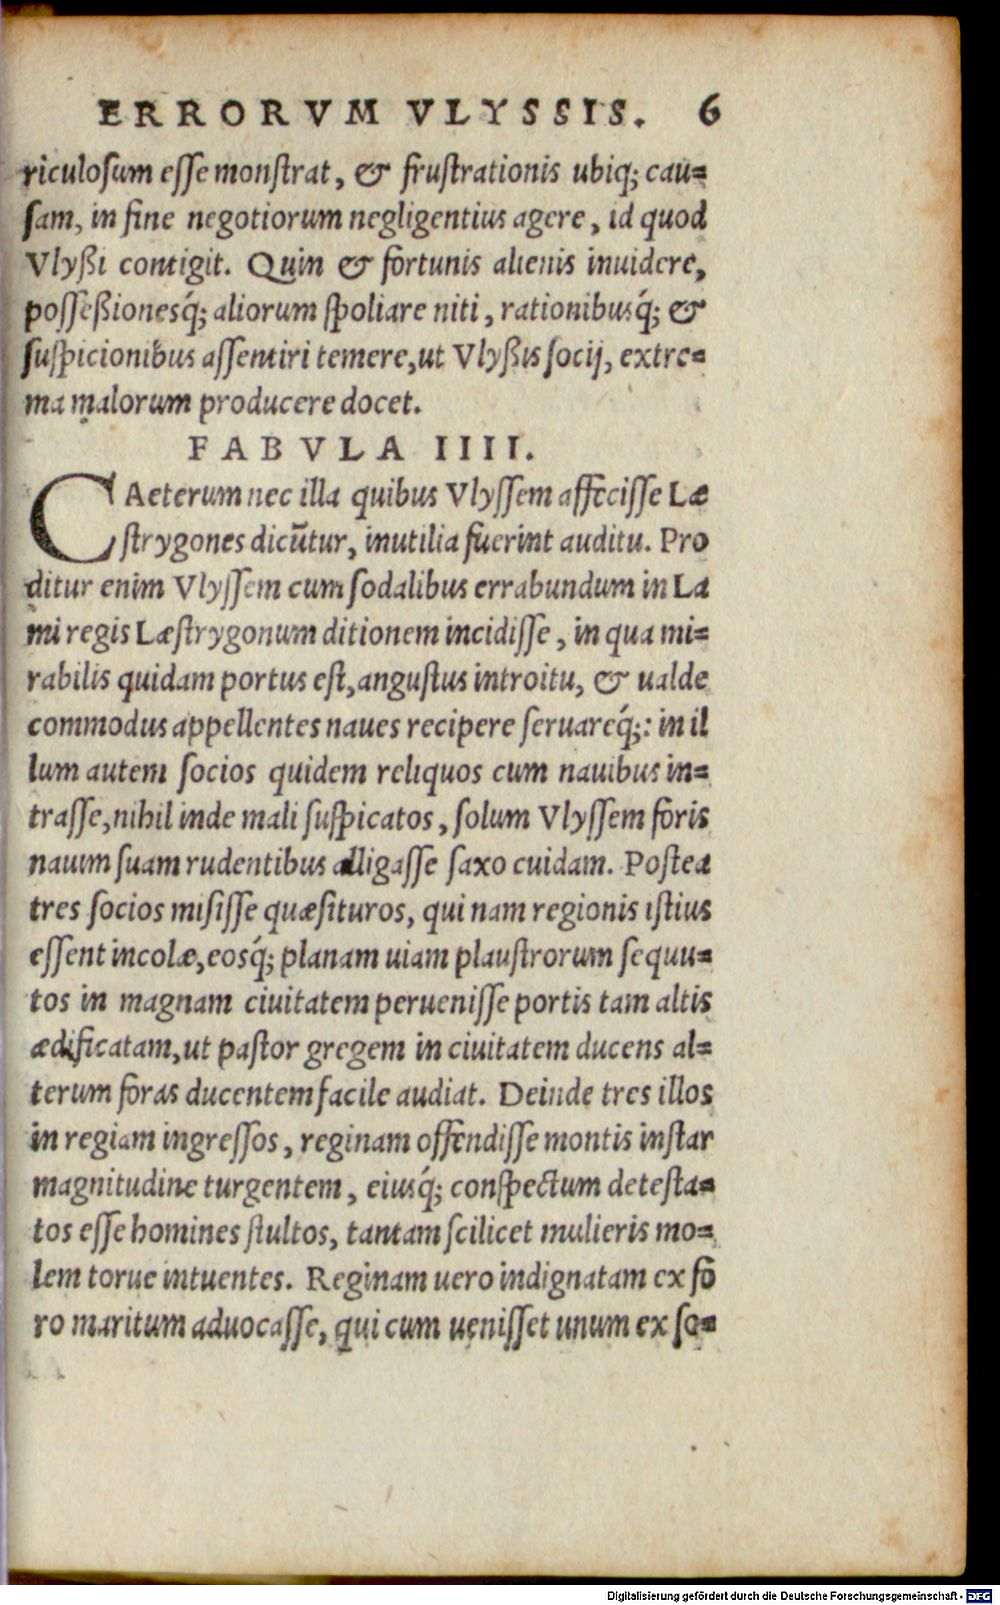 ERRORVM VLYSSIS. 6
riculoſum eſſe monſtrat, & fruſtrationis ubiq; cau=
ſam, in fine negotiorum negligentius agere, id quod
Vlyßi contigit. Quin & fortunis alienis inuidere,
poſſeßionesq́; aliorum ſpoliare niti, rationibusq́; &
ſuſpicionibus aſſentiri temere, ut Vlyßis ſocij, extre=
ma malorum producere docet.
FABVLA IIII.
CAeterum nec illa quibus Vlyſſem affeciſſe Læ
ſtrygones dicũtur, inutilia fuerint auditu. Pro
ditur enim Vlyſſem cum ſodalibus errabundum in La
mi regis Læſtrygonum ditionem incidiſſe, in qua mi=
rabilis quidam portus eſt, anguſtus introitu, & ualde
commodus appellentes naues recipere ſeruareq́;: in il
lum autem ſocios quidem reliquos cum nauibus in=
traſſe, nihil inde mali ſuſpicatos, ſolum Vlyſſem foris
nauim ſuam rudentibus alligaſſe ſaxo cuidam. Poſtea
tres ſocios miſiſſe quæſituros, qui nam regionis iſtius
eſſent incolæ, eosq́; planam uiam plauſtrorum ſequu=
tos in magnam ciuitatem perueniſſe portis tam altis
ædificatam, ut paſtor gregem in ciuitatem ducens al=
terum foras ducentem facile audiat. Deinde tres illos
in regiam ingreſſos, reginam offendiſſe montis inſtar
magnitudine turgentem, eiusq́; conſpectum deteſta=
tos eſſe homines ſtultos, tantam ſcilicet mulieris mo=
lem torue intuentes. Reginam uero indignatam ex fo
ro maritum aduocaſſe, qui cum ueniſſet unum ex ſo=
Digitalisierung gefördert durch die Deutsche Forschungsgemeinschaft - DFG